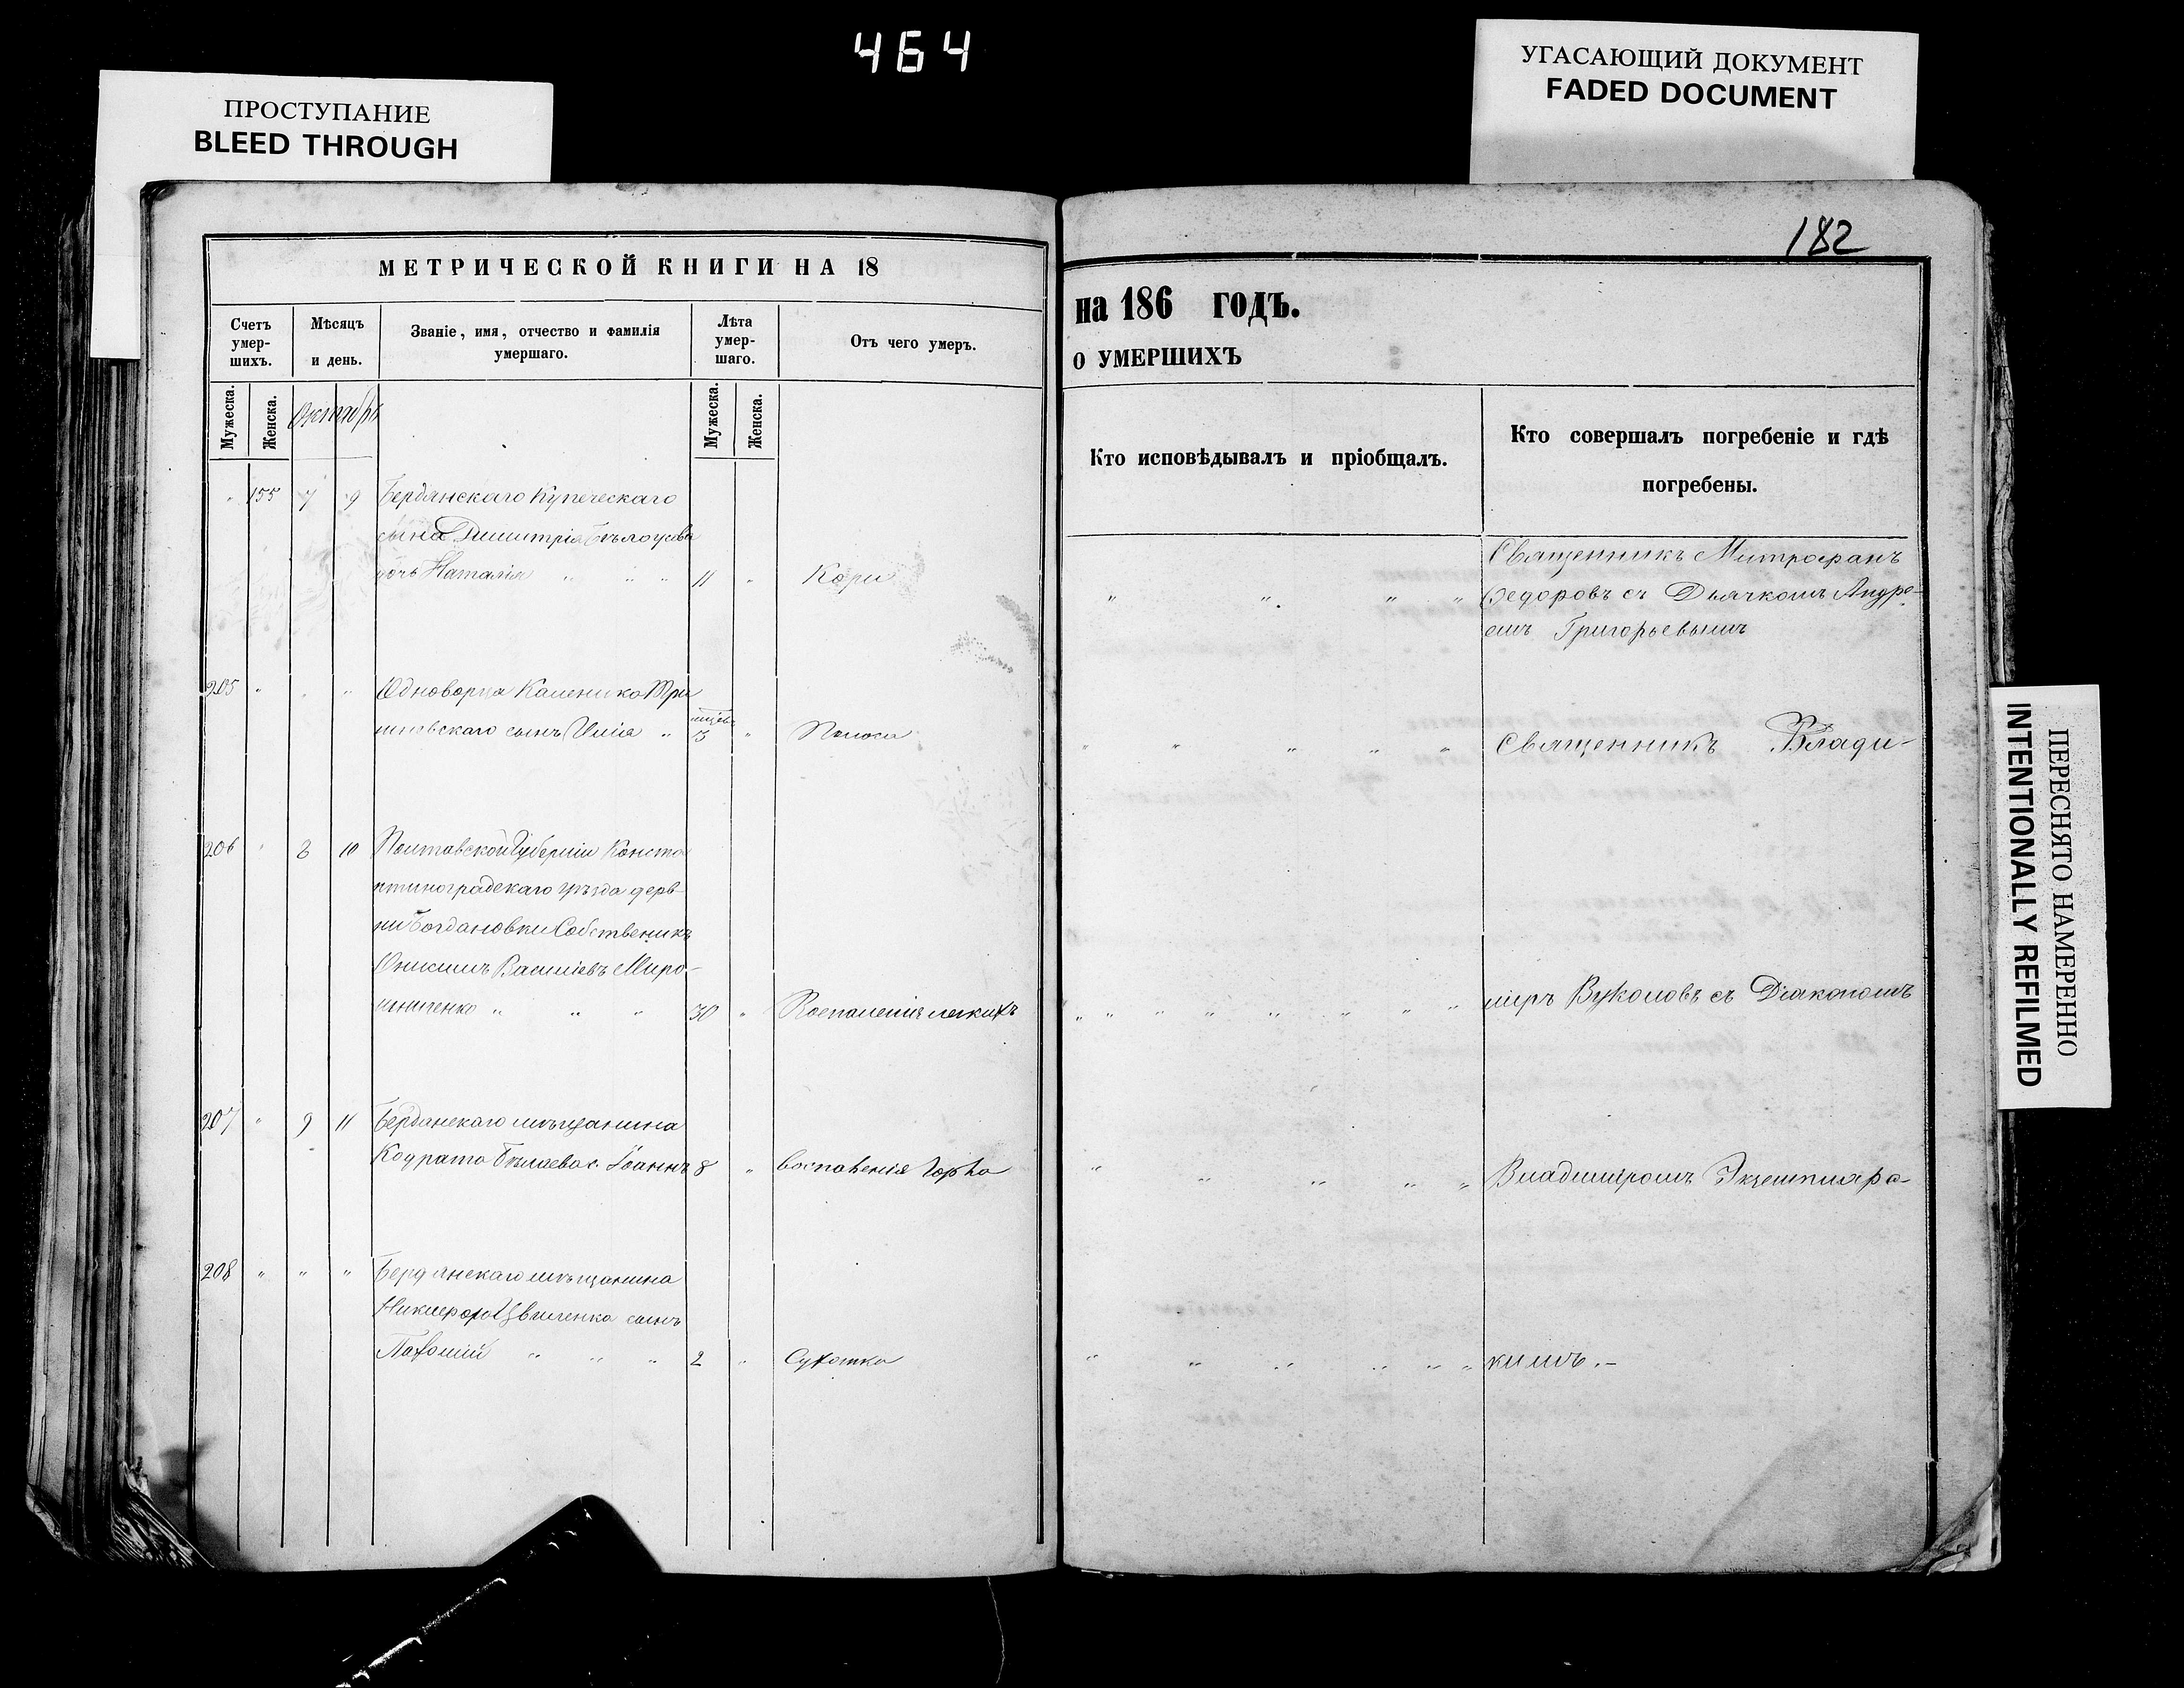 464
ПРОСТУПАНИЕ
BLEED THROUGH
УГАСАЮЩИЙ ДОКУМЕНТ
FADED DOCUMENT
МЕТРИЧЕСКОЙ КНИГИ НА 18
Счетъ умер-шихъ.
Мѣсяцъ и день.
Званіе, имя, отчество и фамилія умершаго.
Лѣта умер-шаго.
Отъ чего умеръ.
Мужеска.
Женска.
Октябрь
Мужеска.
Женска.
" 155 7 9 Бердянскаго Купеческаго
сына Димитрія Бѣлоусова
дочь Наталія " " " 11 " Кори
205 " " " Одноворца Каленика Три
сынъ Илія " 3 "
206 " 8 10 Полтавской Губерніи Конста
нтиноградскаго уѣзда дерв
ни Богдановки Собственикъ
Онисимъ Василіевъ Миро-
шниченко " " " 30 " Воспаленія легкихъ
207 " 9 11 Бердянскаго мѣщанина
Кодрата Бѣлаева с. Іоаннъ 8 " воспаленія горла
208 " " " Бердянскаго мѣщанина
Никифора Цвиленка сынъ
Пахомій " " " 2 " Сухотка
182
на 186 ГОДЪ.
О УМЕРШИХЪ
Кто исповѣдывалъ и пріобщалъ.
Кто совершалъ погребеніе и гдѣ
погребены.
Священникъ Митрофанъ
Федоровъ съ Дьячкомъ Андре-
емъ Григорьевымъ
Священникъ Влади-
миръ Вуколовъ съ Діакономъ
Владиміромъ Экземпляр
кимъ.-
ПЕРЕСНЯТО НАМЕРЕННО
INTENTIONALLY REFILMED